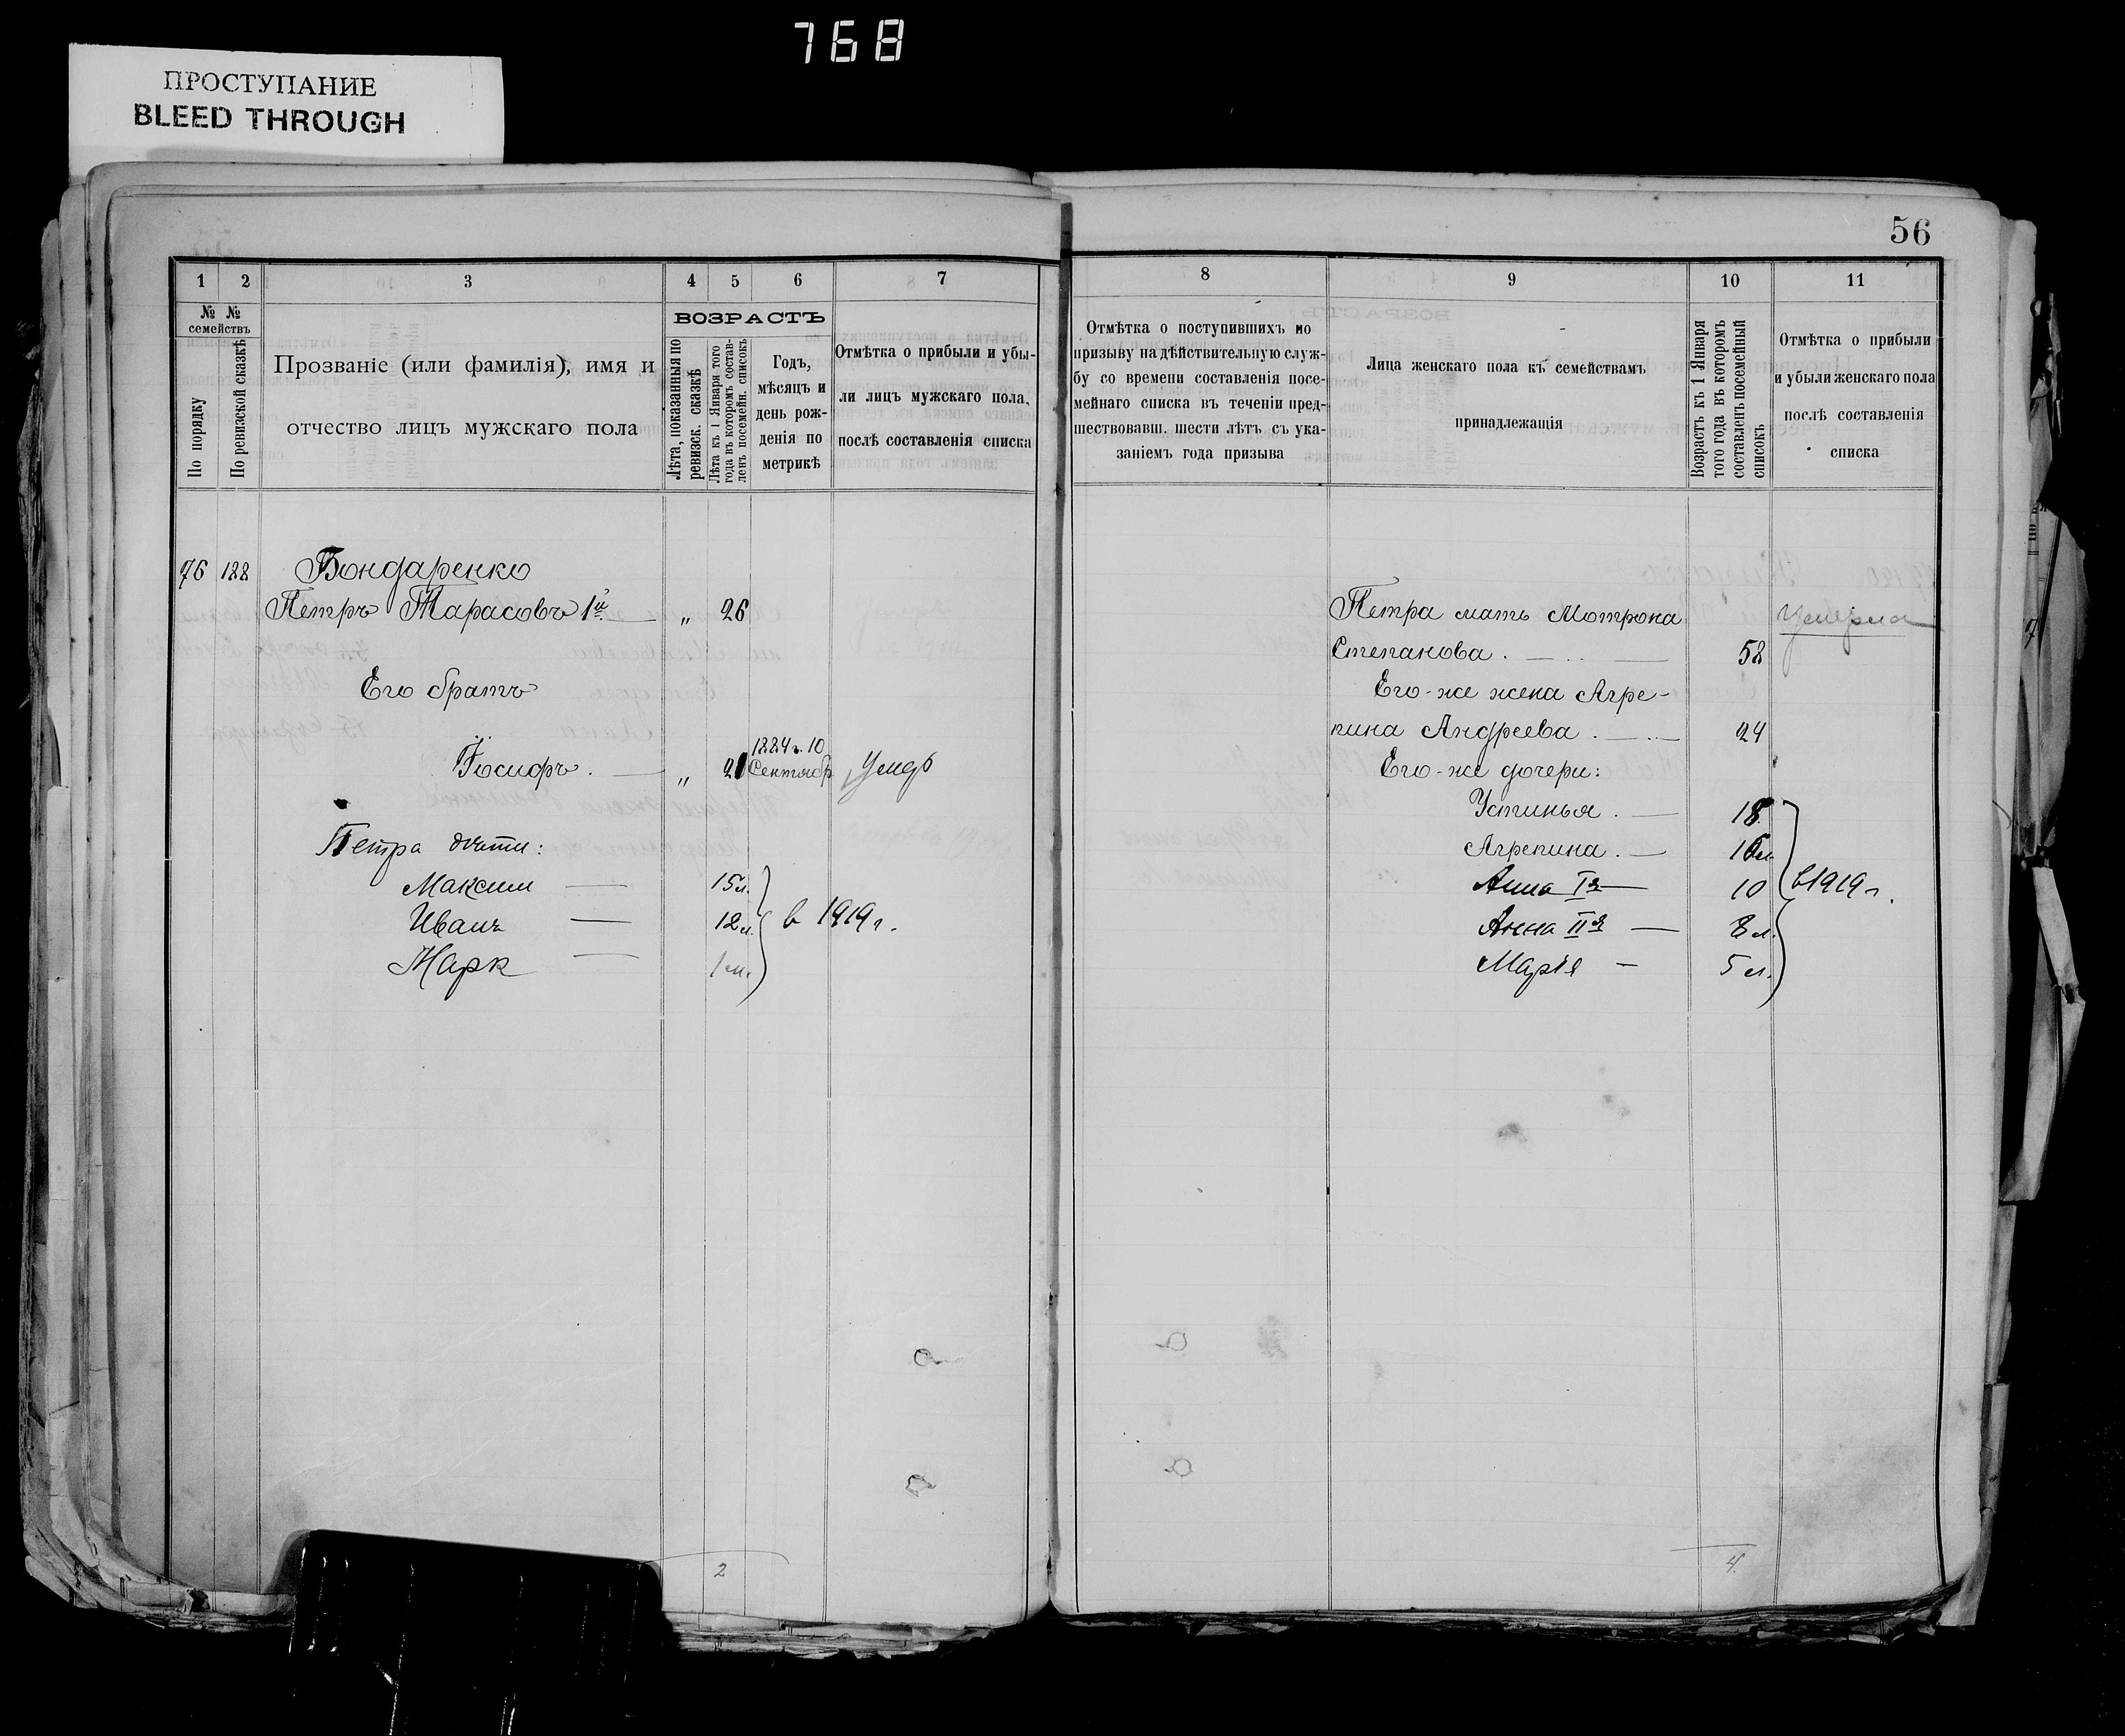 768
ПРОСТУПАНИЕ
BLEED THROUGH
56
1 2 3 4 5 6 7
8 9 10 11
№ №
семействъ
По порядку
По ревизской сказкѣ
Прозваніе (или фамилія), имя и
отчество лицъ мужскаго пола
ВОЗРАСТЪ
Лѣта, показанныя по
ревизск. сказкѣ
Лѣта къ 1 Января того
года въ которомъ состав-
ленъ посемейн. списокъ
Годъ,
мѣсяцъ и
день рож-
денія по
метрикѣ
Отмѣтка о прибыли и убы-
ли лицъ мужскаго пола,
послѣ составленія списка
Отмѣтка о поступившихъ по
призыву на дѣйствительную служ-
бу со времени составленія посе-
мейнаго списка въ теченіи пред-
шествовавш. шести лѣтъ съ ука-
заніемъ года призыва
Лица женскаго пола къ семействамъ
принадлежащія
Возрастъ къ 1 Января
того года въ которомъ
составленъ посемейный
списокъ
Отмѣтка о прибыли
и убыли женскаго пола
послѣ составленія
списка
76 188 Бондаренко
Петръ Тарасовъ 1й — „ 26
Его братъ
Іосифъ. — „ 21 1884 г. 10 Сентябр Умеръ
Петра дѣти:
Максим — 15 л.
Иванъ — 12 л. в 1919 г.
Марк — 1 м.
2
Петра мать Мотрона Умерла
Степанова. — 58
Его-же жена Агре-
пина Андреева. — 24
Его-же дочери:
Устинья. — 18
Агрепина. — 16 л.
Анна Iя — 10 в 1919 г.
Анна IIя — 8 л.
Марія — 5 л.
4.